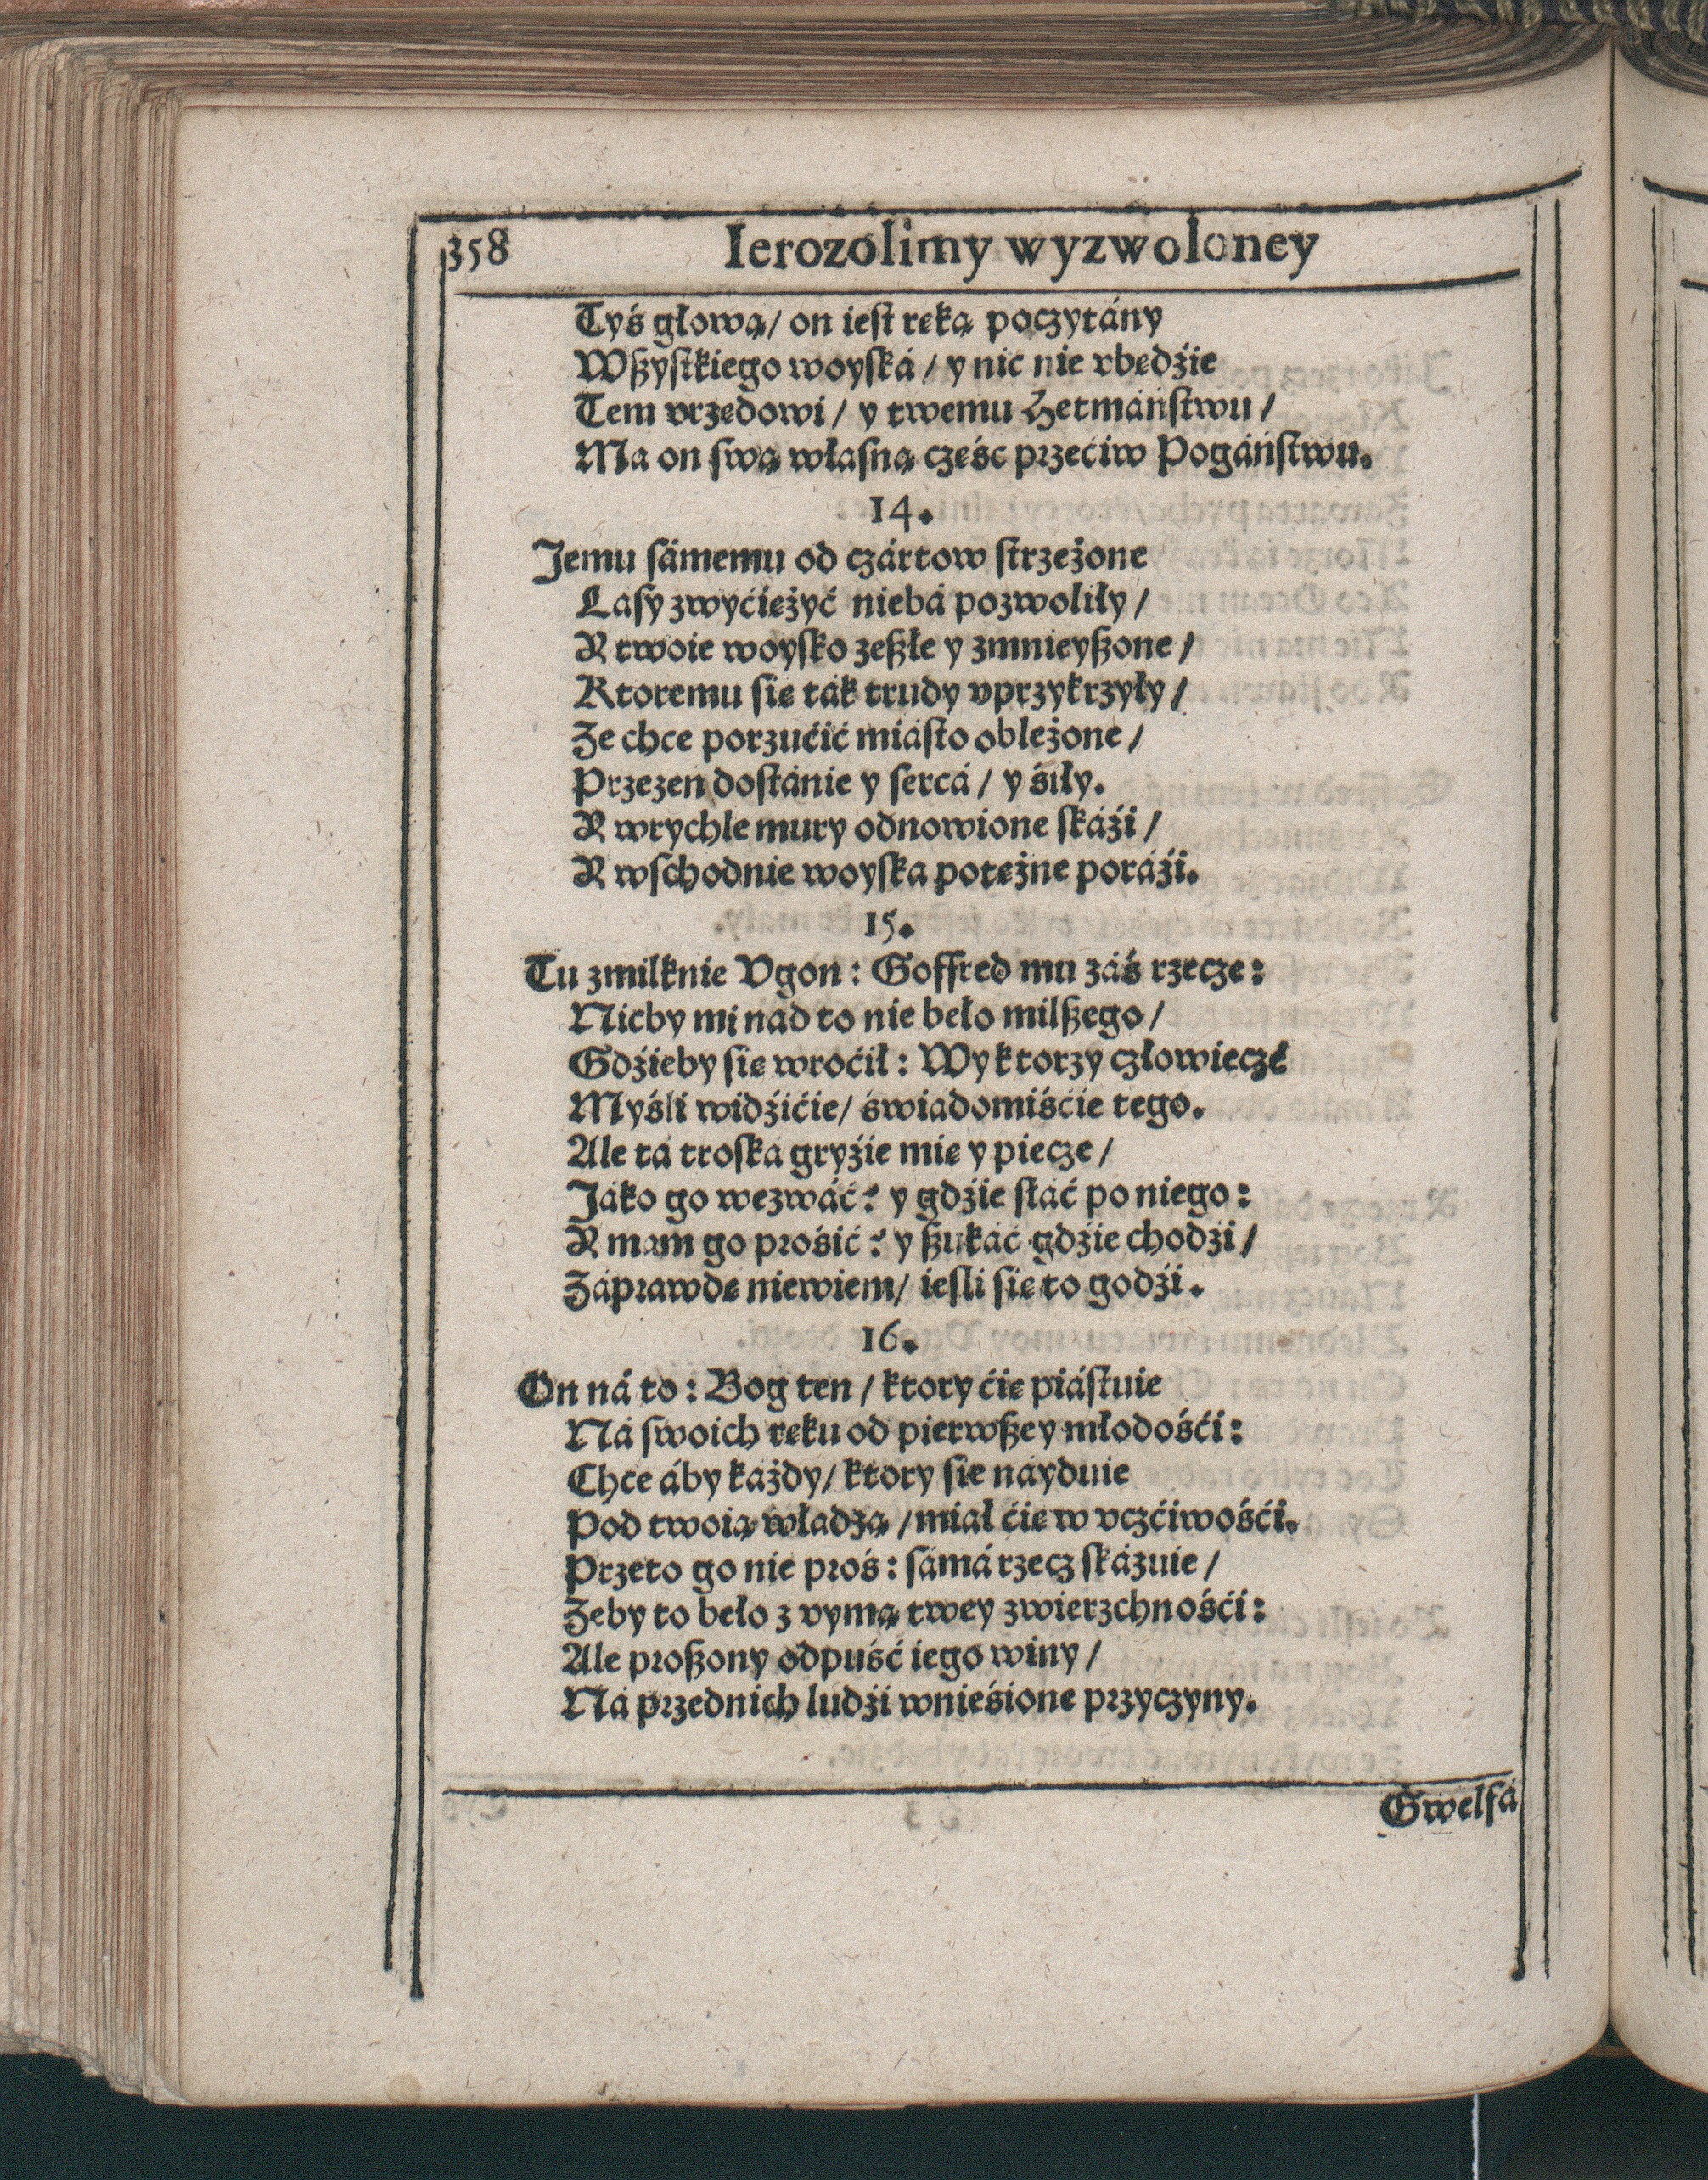 358 Ierozolimy wyzwoloney
Tyś głową/ on iest ręką poczytány
Wszystkiego woyská / y nic nie vbędźie
Tem vrzędowi / y twemu Hetmáństwu /
Ma on swą własną cześc przećiw Pogáństwu.
14.
Jemu sámemu od czártow strzeżone
Lasy zwyćiężyć niebá pozwoliły /
A twoie woysko zeszłe y zmnieyszone /
Ktoremu się ták trudy vprzykrzyły /
Ze chce porzućić miásto oblężone /
Przezen dostánie y sercá / y śiły.
A wrychle mury odnowione skáźi /
A wschodnie woyska potężne poráźi.
15.
Tu zmilknie Vgon: Goffred mu záś rzecze:
Nicby mi nád to nie beło milszego /
Gdźieby się wroćił: Wy ktorzy człowiecze
Myśli widźićie/ świadomiśćie tego.
Ale tá troská gryźie mię y piecze /
Jáko go wezwáć? y gdźie słáć po niego:
A mam go prośić? y szukáć gdźie chodźi /
Záprawdę niewiem/ iesli się to godźi.
16.
On ná to: Bog ten / ktory ćię piástuie
Ná swoich ręku od pierwszey młodośći:
Chce áby każdy/ ktory się náyduie
Pod twoią władzą /miał ćię w vczćiwośći.
Przeto go nie proś: sámá rzecz skázuie /
Zeby to beło z vymą twey zwierzchnośći:
Ale proszony odpuść iego winy /
Ná przednich ludźi wnieśione przyczyny.
Gwelfá